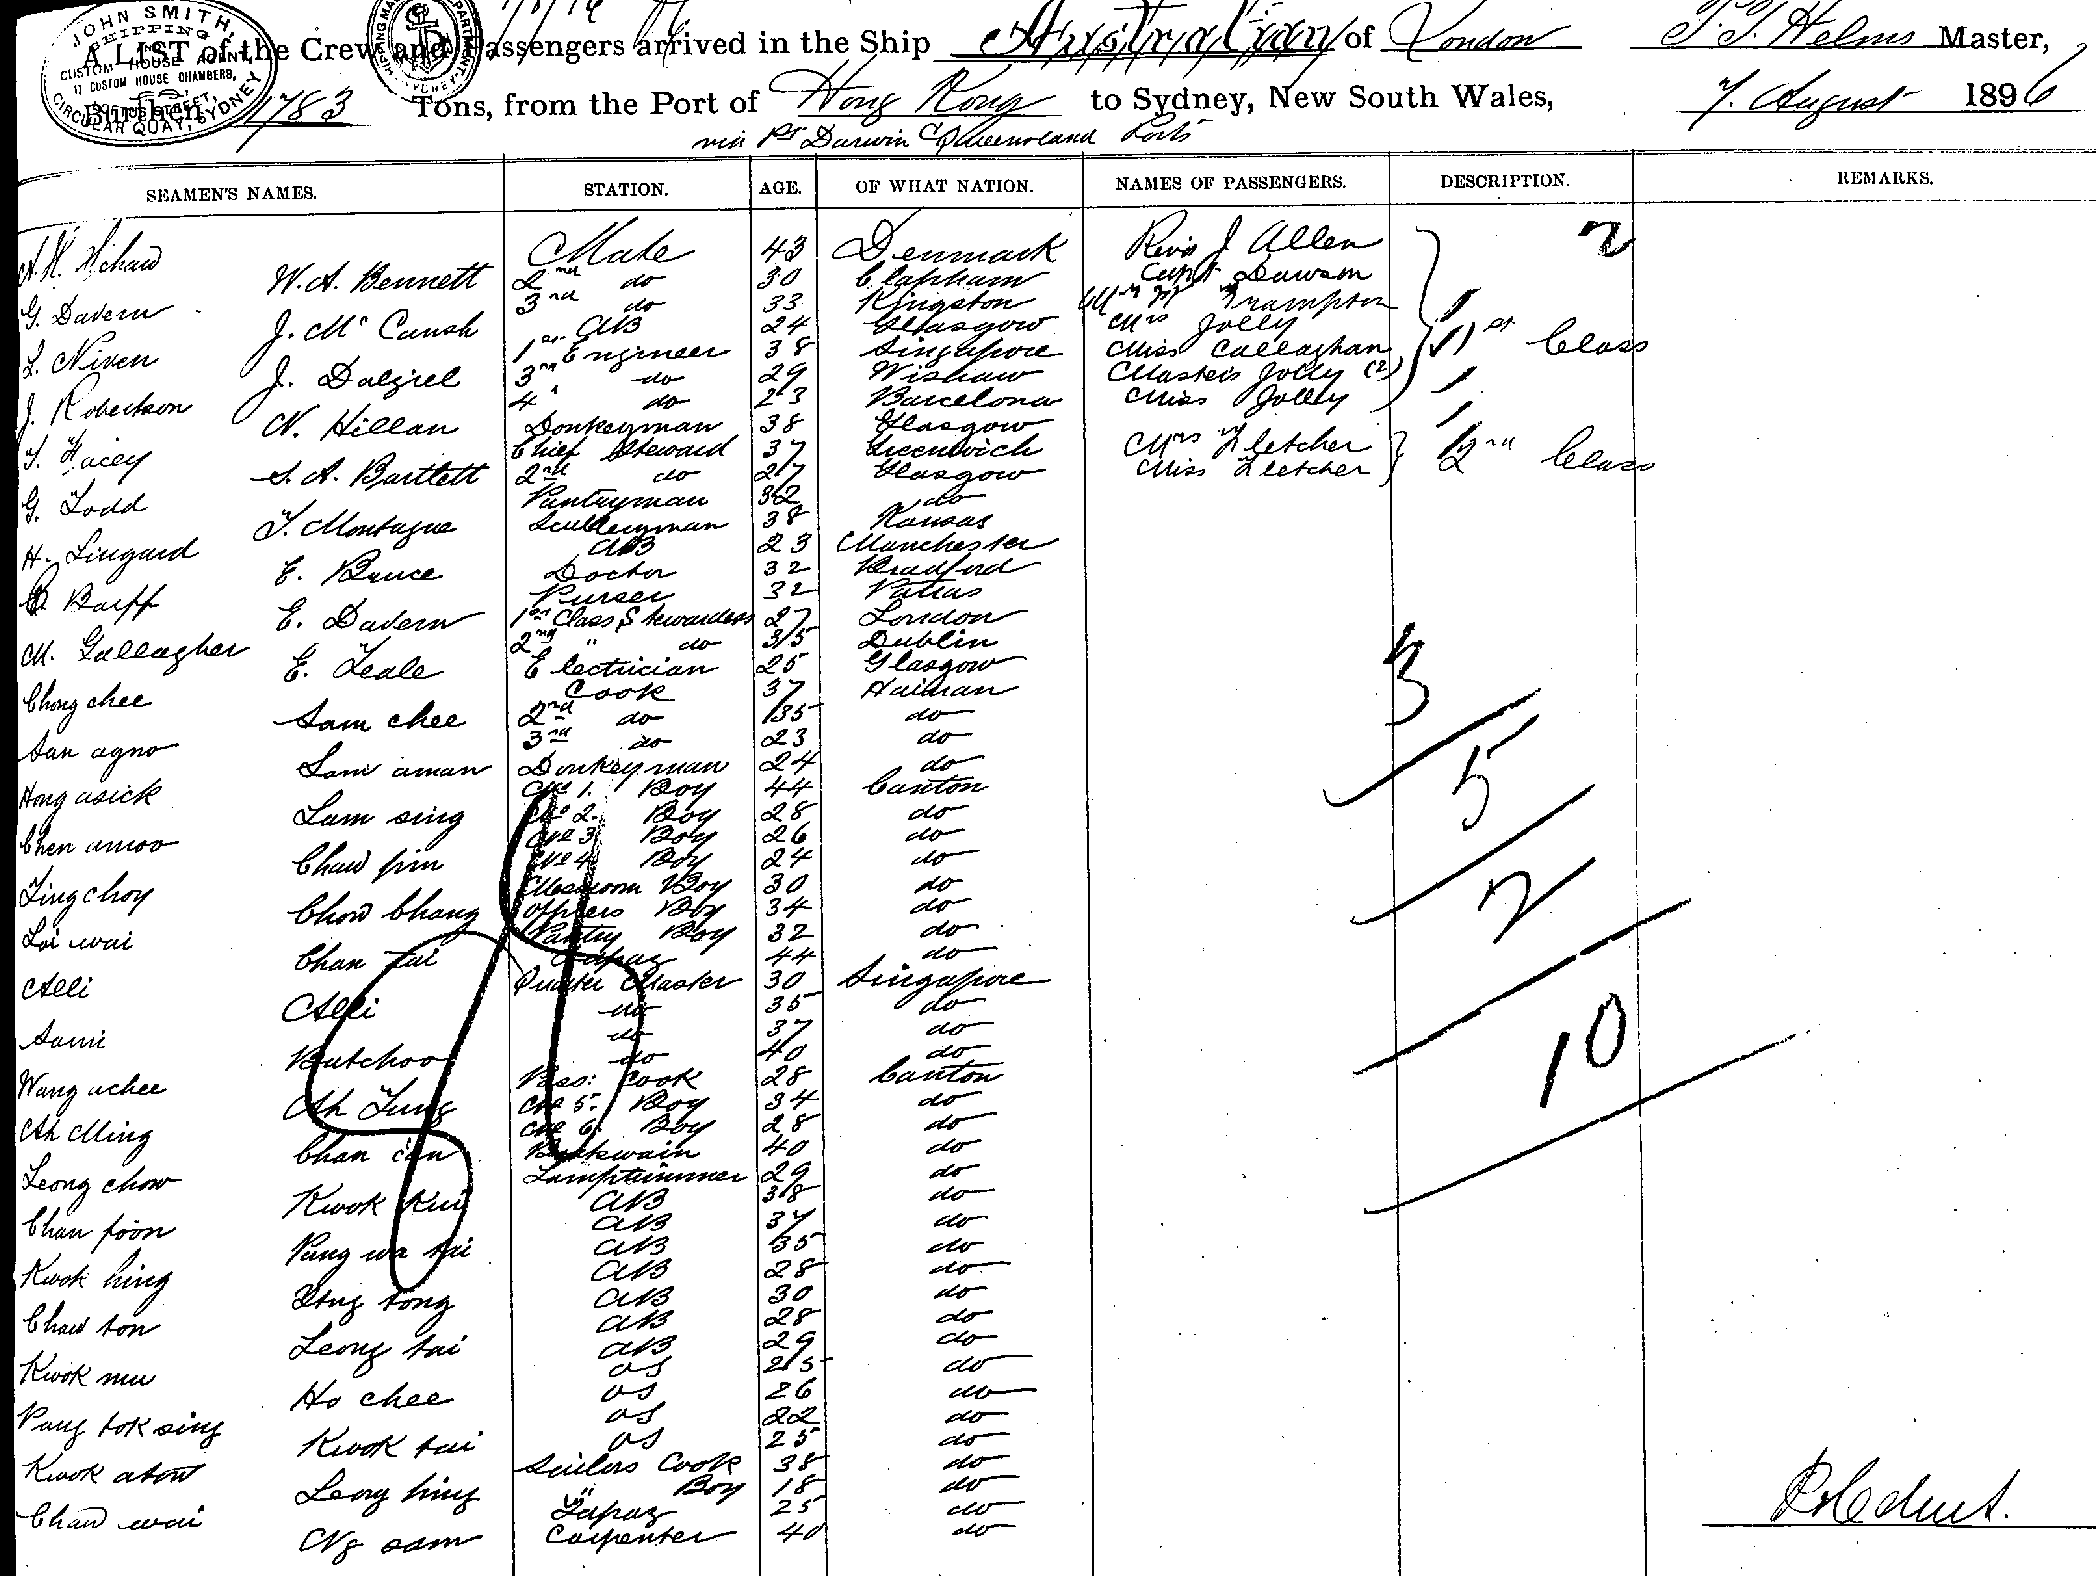 JOHN SMITH,
SHIPPING
AND
CUSTOM HOUSE AGENT,
17 CUSTOM HOUSE CHAMBERS,
CIRCULAR QUAY, SYDNEY
A LIST of the Crew and Passengers arrived in the Ship Australian of London T. T. Helms Master,
Burthen, 1783 Tons, from the Port of Hong Kong to Sydney, New South Wales, 7. August 1896
via Pt Darwin & Queensland Ports
SEAMEN'S NAMES. STATION. AGE. OF WHAT NATION. NAMES OF PASSENGERS. DESCRIPTION. REMARKS.
Mate 43 Denmark Revd J Allen 2
W. A. Bennett 2nd do 30 Clapham Capt Dawson
G. Davern 3rd do 33 Kingston Frampton
J. McCaush AB 24 Glasgow Mrs Jolly
L. Niven 1st Engineer 38 Singapore Miss Callaghan 1st Class
J. Dalziel 3rd do 29 Wishaw Masters Jolly (2)
J. Robertson 4 do 23 Barcelona Miss Jolly
N. Hillan Donkeyman 38 Glasgow
T. Facey Chief Steward 37 Greenwich Mrs Fletcher 2nd Class
S. A. Bartlett 2nd do 27 Glasgow Miss Fletcher
G. Todd Pantryman 32 do
T. Montague Sculleryman 38 Kansas
H. Lingard AB 23 Manchester
E. Bruce Doctor 32 Bradford
Barff Purser 32 Patras
E. Davern 1st Class Stewardess 27 London
M. Gallagher 2nd " do 35 Dublin
E. Teale Electrician 25 Glasgow
Chong chee Cook 37 Hainan
Sam chee 2nd do 35 do
San agno 3rd do 23 do
Lam aman Donkeyman 24 do
Hong asick No 1. Boy 44 Canton
Lam sing No 2. Boy 28 do
Chen amoo No 3 Boy 26 do
Chaw pin No 4 Boy 24 do
Ting choy Messroom Boy 30 do
Chow Chang Officers Boy 34 do
Loi wai Pantry Boy 32 do
Chan Tai Lapaz 44 do
Alli Quarter Master 30 Singapore
Alli do 35 do
Sami do 37 do
Butchoo do 40 do
Wang achee Pass: Cook 28 Canton
Ah Tung No 5. Boy 34 do
Ah Ming No 6. Boy 28 do
Chan can 40 do
Leong chow Lamptrimmer 29 do
Kwok Kui AB 38 do
Chan foon AB 37 do
Pang wa tai AB 35 do
Kwok hing AB 28 do
tong AB 30 do
Chaw ton AB 28 do
Leong tai AB 29 do
Kwok mu OS 25 do
Ho chee OS 26 do
Pang tok sing OS 22 do
Kwok tai OS 25 do
Kwok atow Sailors Cook 38 do
Leong hing " Boy 18 do
Chaw wai Lapaz 25 do
Ng sam Carpenter 40 do
3
5
2
10